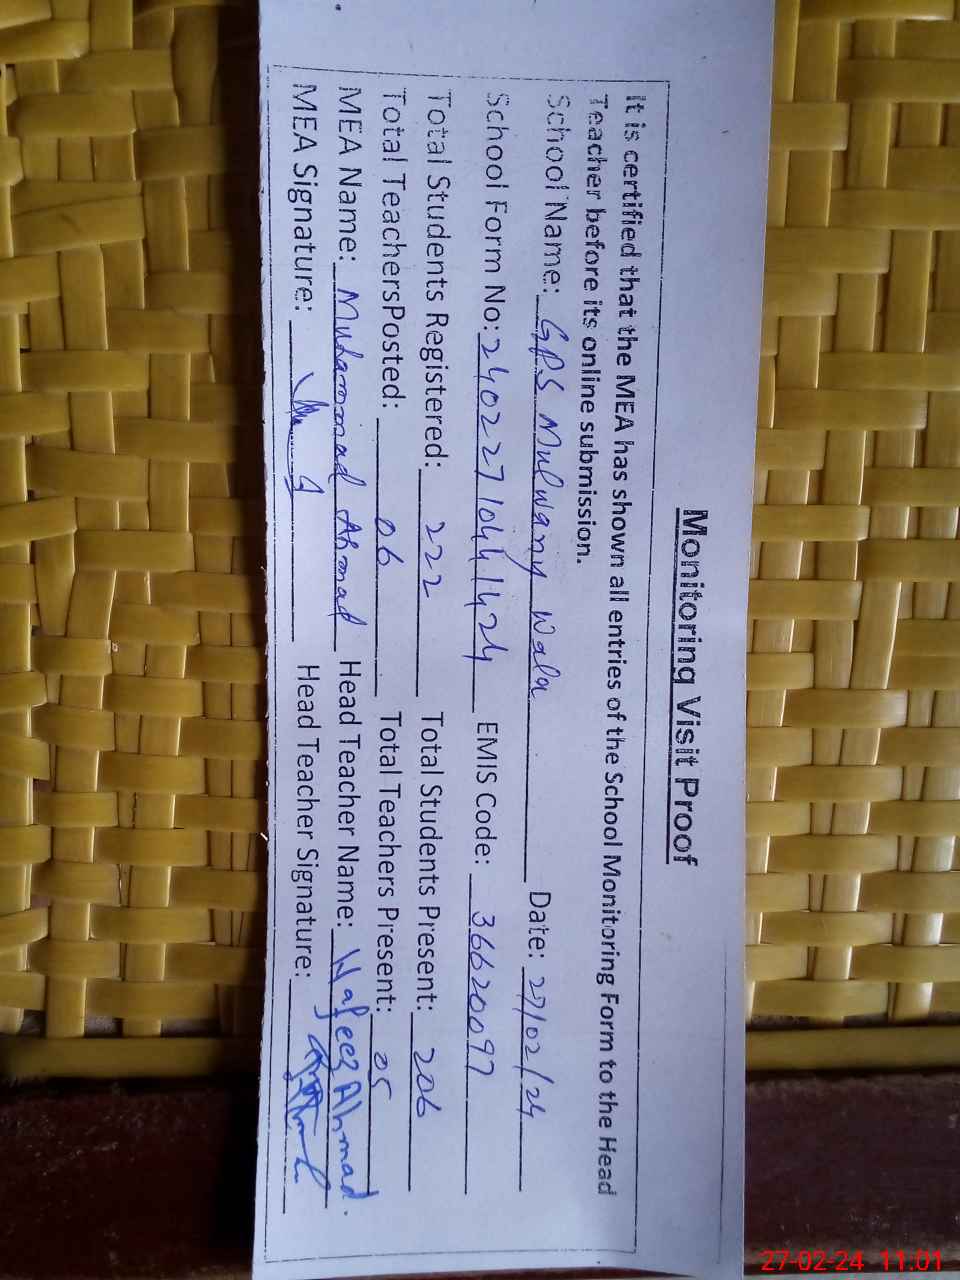 Monitoring Visit Proof
It is certified that the MEA has shown all entries of the School Monitoring Form to the Head
Teacher before its online submission.
School Name: GPS Mulwany Wala Date: 27/02/24
School Form No: 24022710441424 EMIS Code: 36620097
Total Students Registered: 222 Total Students Present: 206
Total TeachersPosted: 06 Total Teachers Present: 05
MEA Name: Muhammad Ahmad Head Teacher Name: Hafeez Ahmad.
MEA Signature: Head Teacher Signature:
27-02-24 11:01